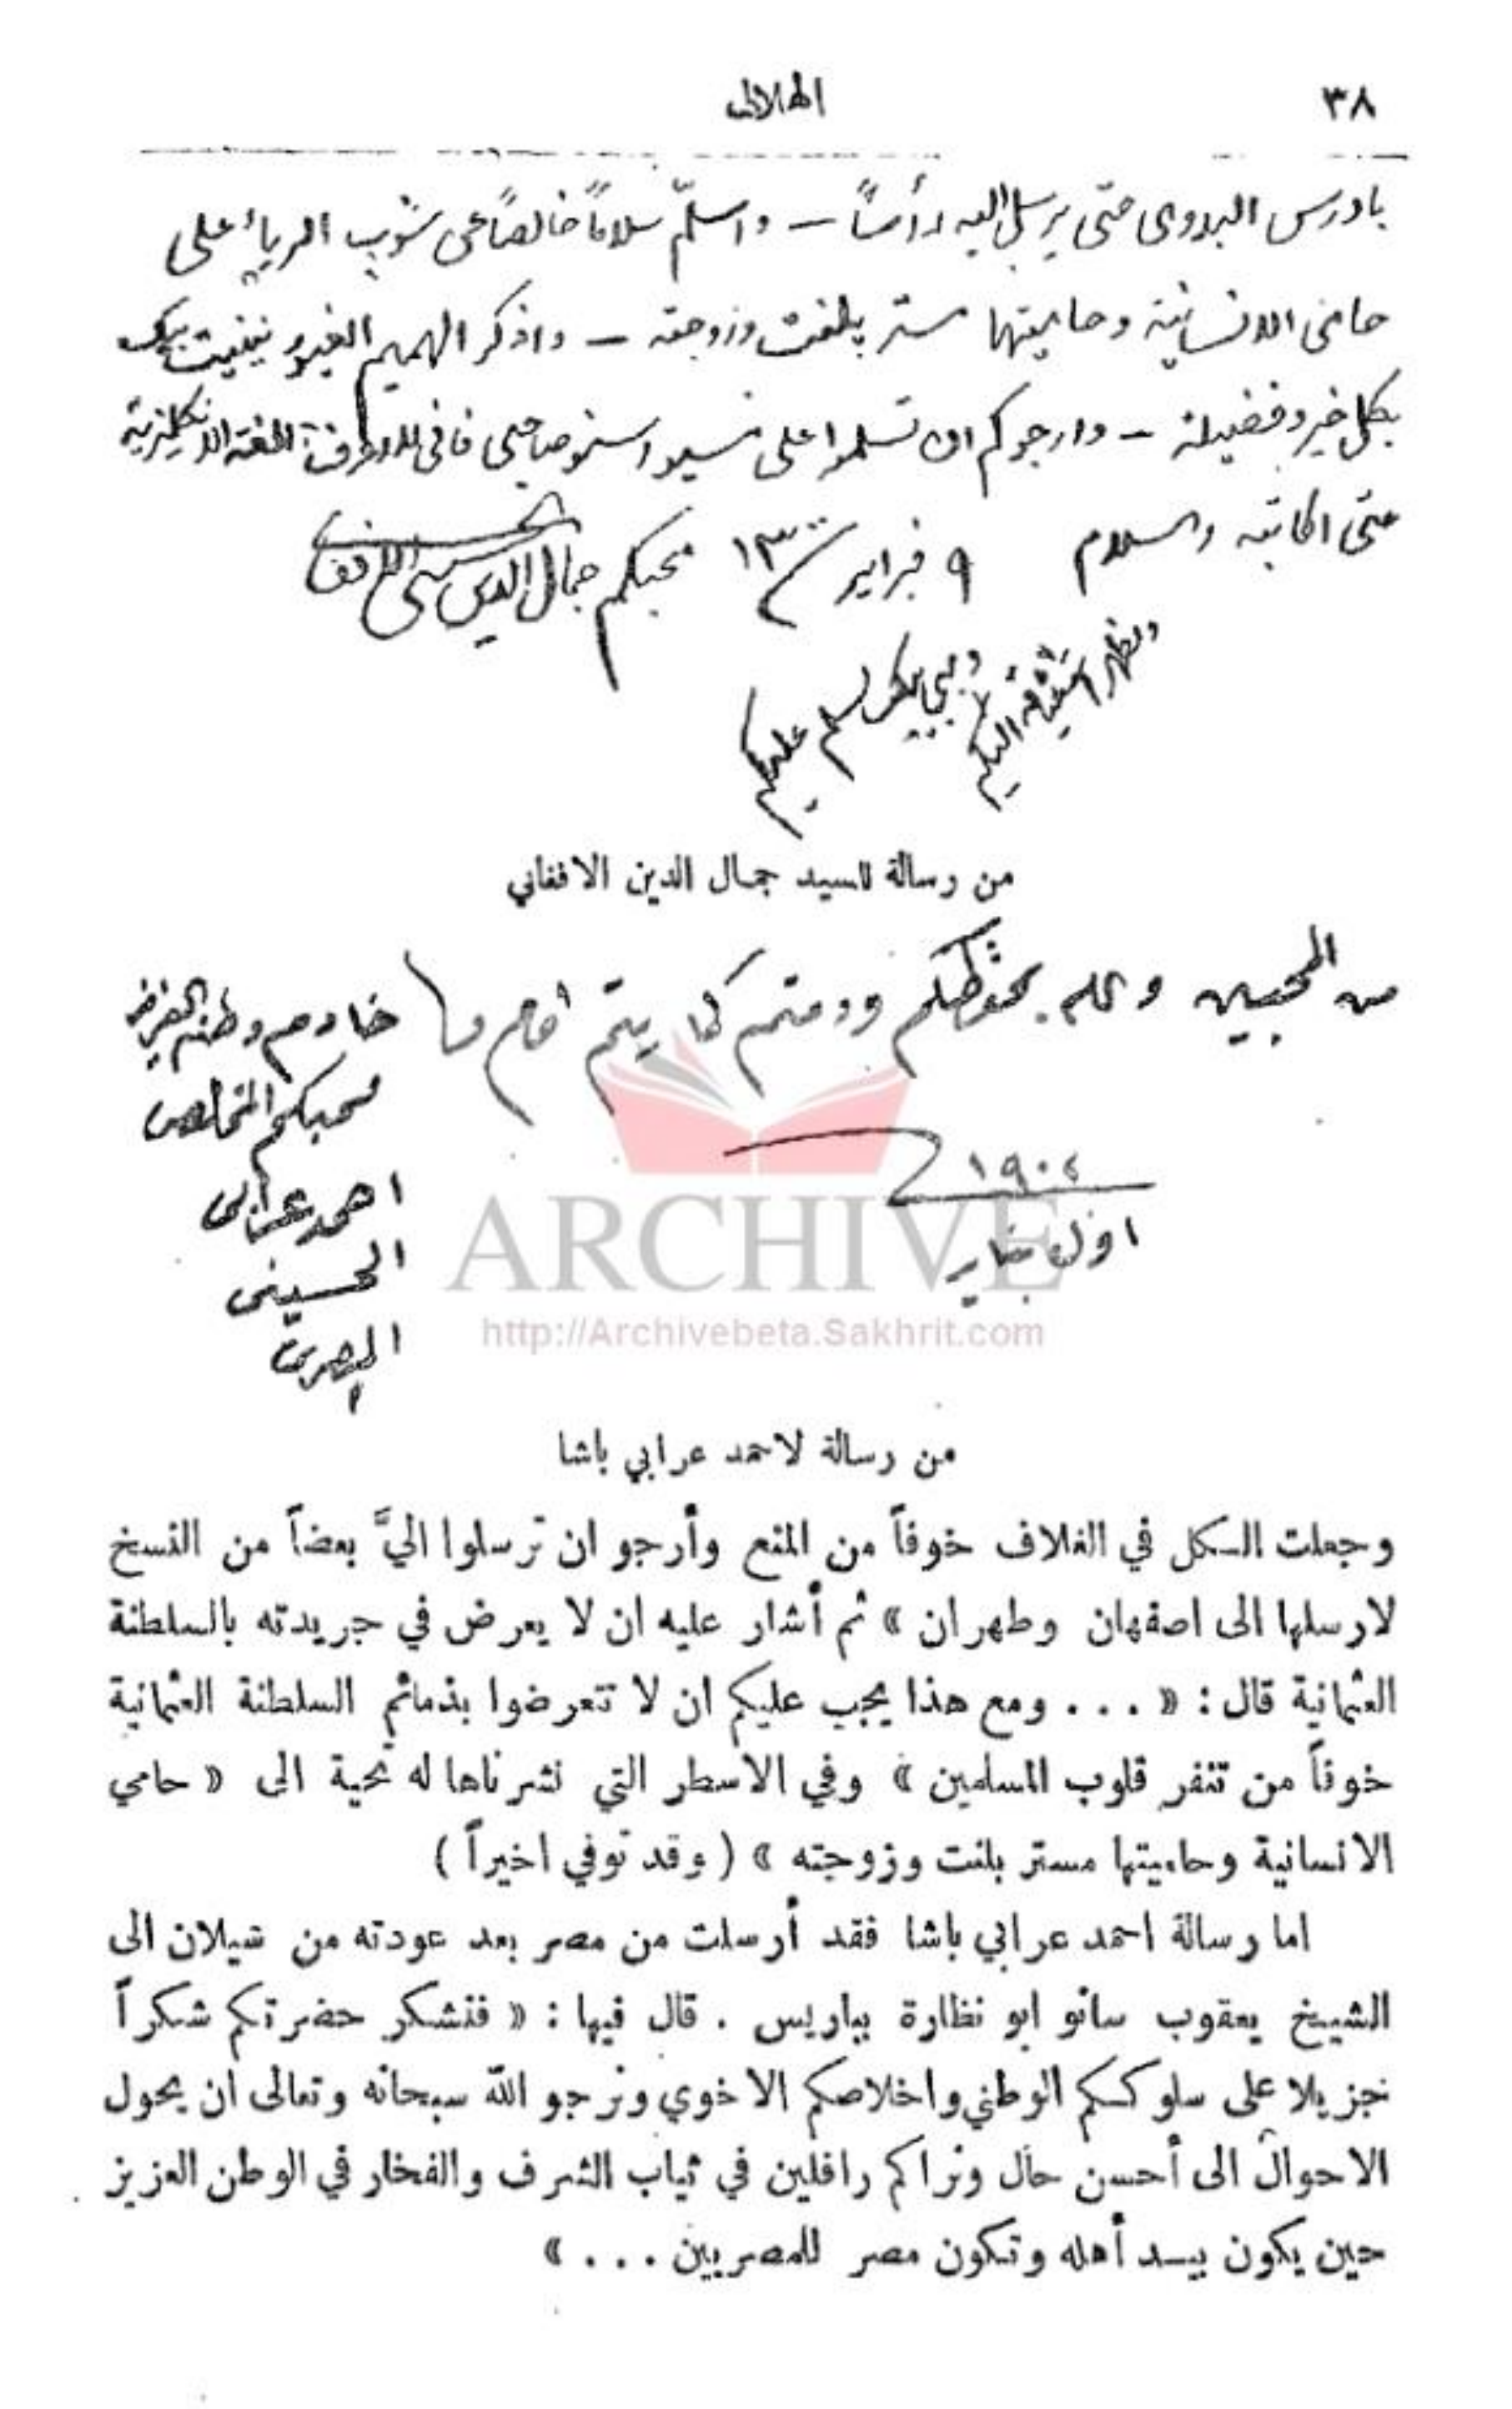 ٣٨
الهلال
بادرس البدوى حتى يرسل اليه رأساً — واسلّم سلاماً خالصاً عن شوب الرياء على
حامى الانسانية وحاميتها مستر بلنت وزوجته — واذكر الهميم الغيور بيك
بكل خير وفضيلة — وارجوكم ان تسلموا على مسيو صاحبى فانى لا اعرف اللغة الانكليزية
حتى اكاتبه والسلام ٩ فبراير ١٣٠٠ محبكم جمال الدين الحسينى الافغانى
بيك يسلم عليكم
ويظهر اشتياقه اليكم
من رسالة للسيد جمال الدين الافغاني
من المحبين والله يحفظكم ودمتم كما يتم
خادم وطنه العزيز
محبكم المخلص
احمد عرابى
الحسينى
المصرى
١٩٠٤
اول يناير
ARCHIVE
http://Archivebeta.Sakhrit.com
من رسالة لاحمد عرابي باشا
وجعلت الكل في الغلاف خوفاً من المنع وأرجو ان ترسلوا اليَّ بعضاً من النسخ
لارسلها الى اصفهان وطهران » ثم أشار عليه ان لا يعرض في جريدته بالسلطنة
العثمانية قال : « . . . ومع هذا يجب عليكم ان لا تتعرضوا بذمائم السلطنة العثمانية
خوفاً من تنفر قلوب المسلمين » وفي الاسطر التي نشرناها له تحية الى « حامي
الانسانية وحاميتها مستر بلنت وزوجته » ( وقد توفي اخيراً )
اما رسالة احمد عرابي باشا فقد أرسلت من مصر بعد عودته من سيلان الى
الشيخ يعقوب سانو ابو نظارة بباريس . قال فيها : « فنشكر حضرتكم شكراً
جزيلا على سلوككم الوطني واخلاصكم الاخوي ونرجو الله سبحانه وتعالى ان يحول
الاحوال الى أحسن حال ونراكم رافلين في ثياب الشرف والفخار في الوطن العزيز
حين يكون بيد أهله وتكون مصر للمصريين . . . »